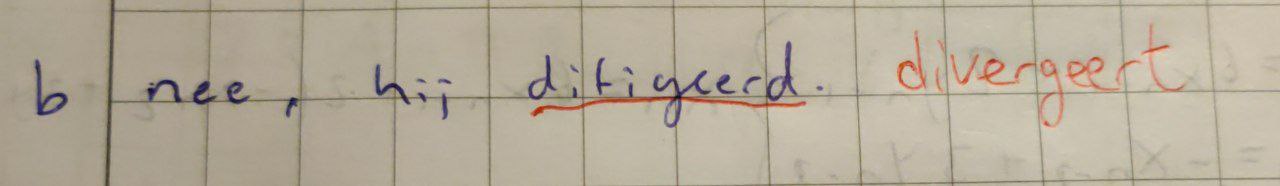 b nee, hij difigeerd. divergeert